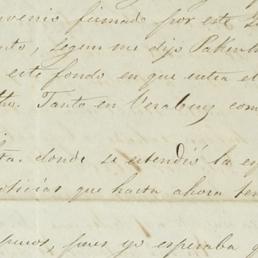 venio firmado por este
nto, segun me dijo Paken
este fondo en que entra el
tho. Tanto en Veracruz com
ta. donde se entendió la es
noticias que hasta ahora ten
pesos, pues yo esperaba q